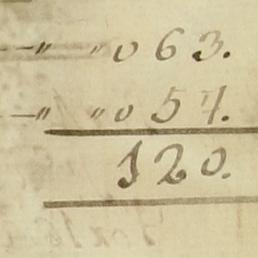 —〃 〃063.
—〃 〃057.
120.